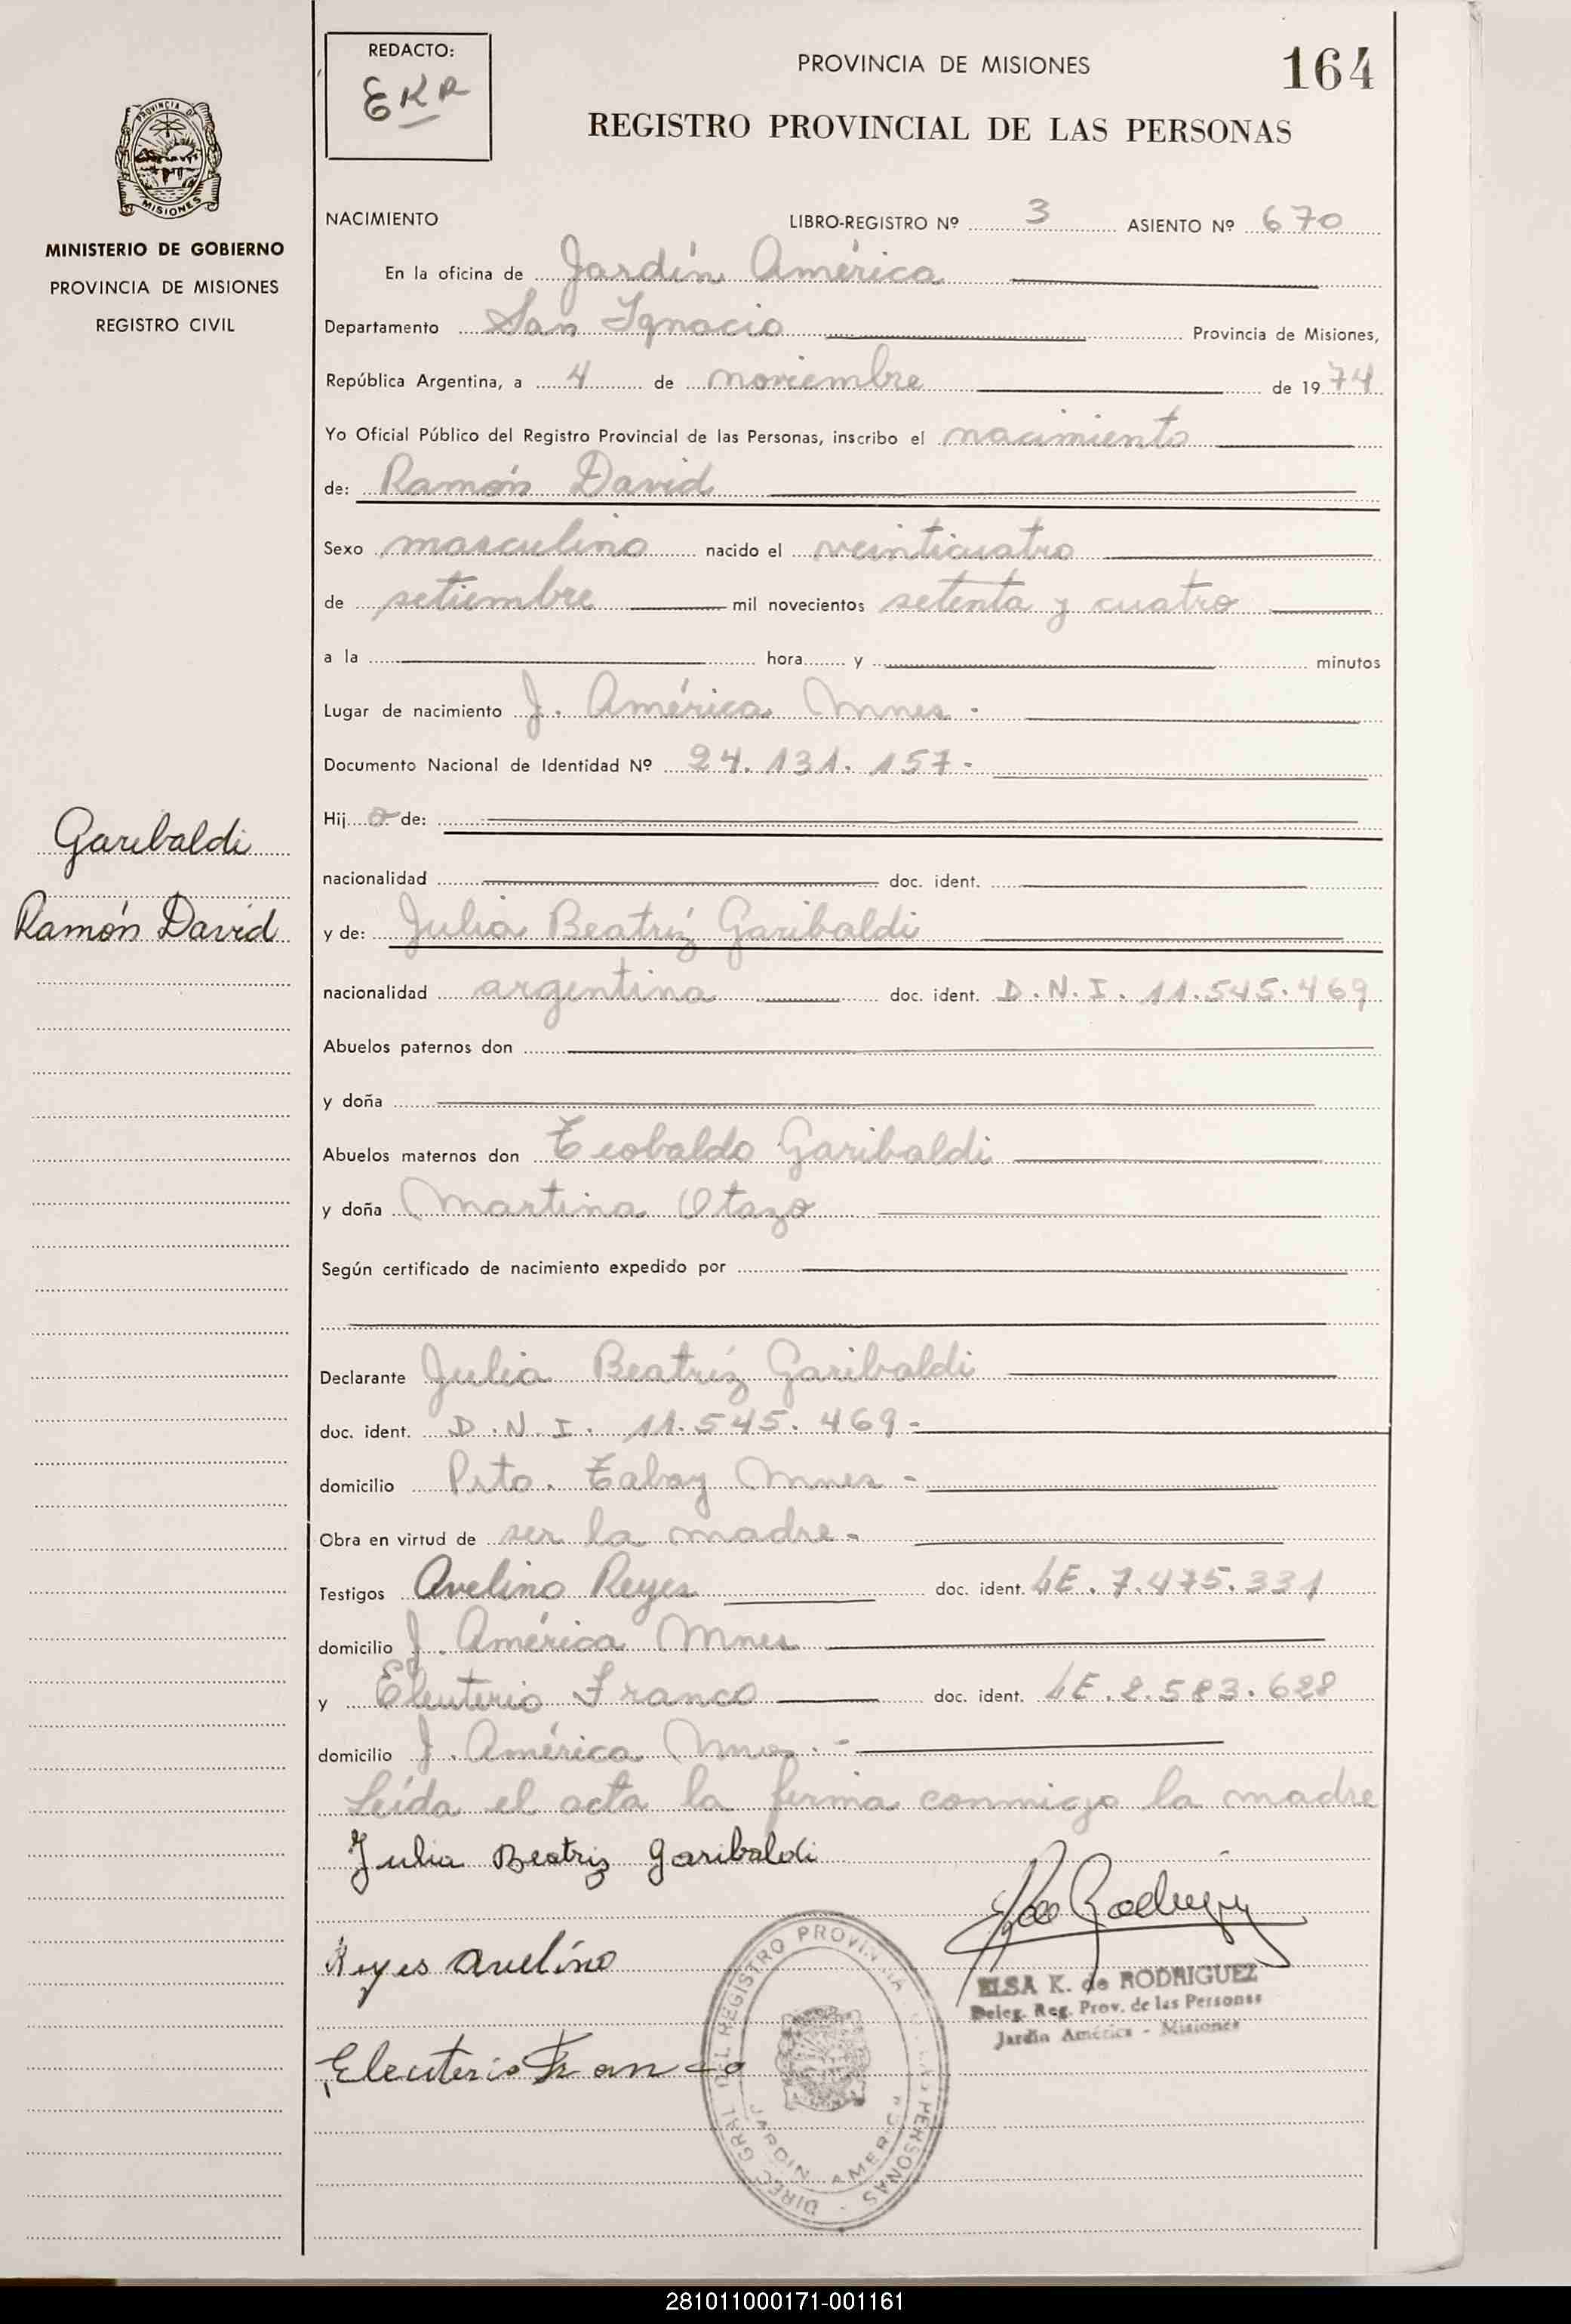 REDACTO:
EKR
PROVINCIA DE MISIONES
164
REGISTRO PROVINCIAL DE LAS PERSONAS
PROVINCIA DE
MISIONES
MINISTERIO DE GOBIERNO
PROVINCIA DE MISIONES
REGISTRO CIVIL
NACIMIENTO LIBRO-REGISTRO Nº 3 ASIENTO Nº 670
En la oficina de Jardín América
Departamento San Ignacio Provincia de Misiones,
República Argentina, a 4 de noviembre de 1974
Yo Oficial Público del Registro Provincial de las Personas, inscribo el nacimiento
de: Ramón David
Sexo masculino nacido el veinticuatro
de setiembre mil novecientos setenta y cuatro
a la hora y minutos
Lugar de nacimiento J. América Mnes -
Documento Nacional de Identidad Nº 24.131.157-
Hijo de:
nacionalidad doc. ident.
Garibaldi
Ramón David
y de: Julia Beatríz Garibaldi
nacionalidad argentina doc. ident. D.N.I. 11.545.469
Abuelos paternos don
y doña
Abuelos maternos don Teobaldo Garibaldi
y doña Martina Otazo
Según certificado de nacimiento expedido por
Declarante Julia Beatríz Garibaldi
doc. ident. D.N.I. 11.545.469-
domicilio Pto. Tabay Mnes -
Obra en virtud de ser la madre-
Testigos Avelino Reyes doc. ident. LE.7.475.331
domicilio J. América Mnes
y Eleuterio Franco doc. ident. LE.2.583.628
domicilio J. América Mnes.-
Leída el acta la firma conmigo la madre
Julia Beatriz Garibaldi
Reyes Avelino
Eleuterio Franco
ELSA K. de RODRIGUEZ
Deleg. Reg. Prov. de las Personas
Jardín América - Misiones
DIREC. GRAL. DEL REGISTRO PROVINCIAL DE LAS PERSONAS
JARDIN AMERICA
281011000171-001161